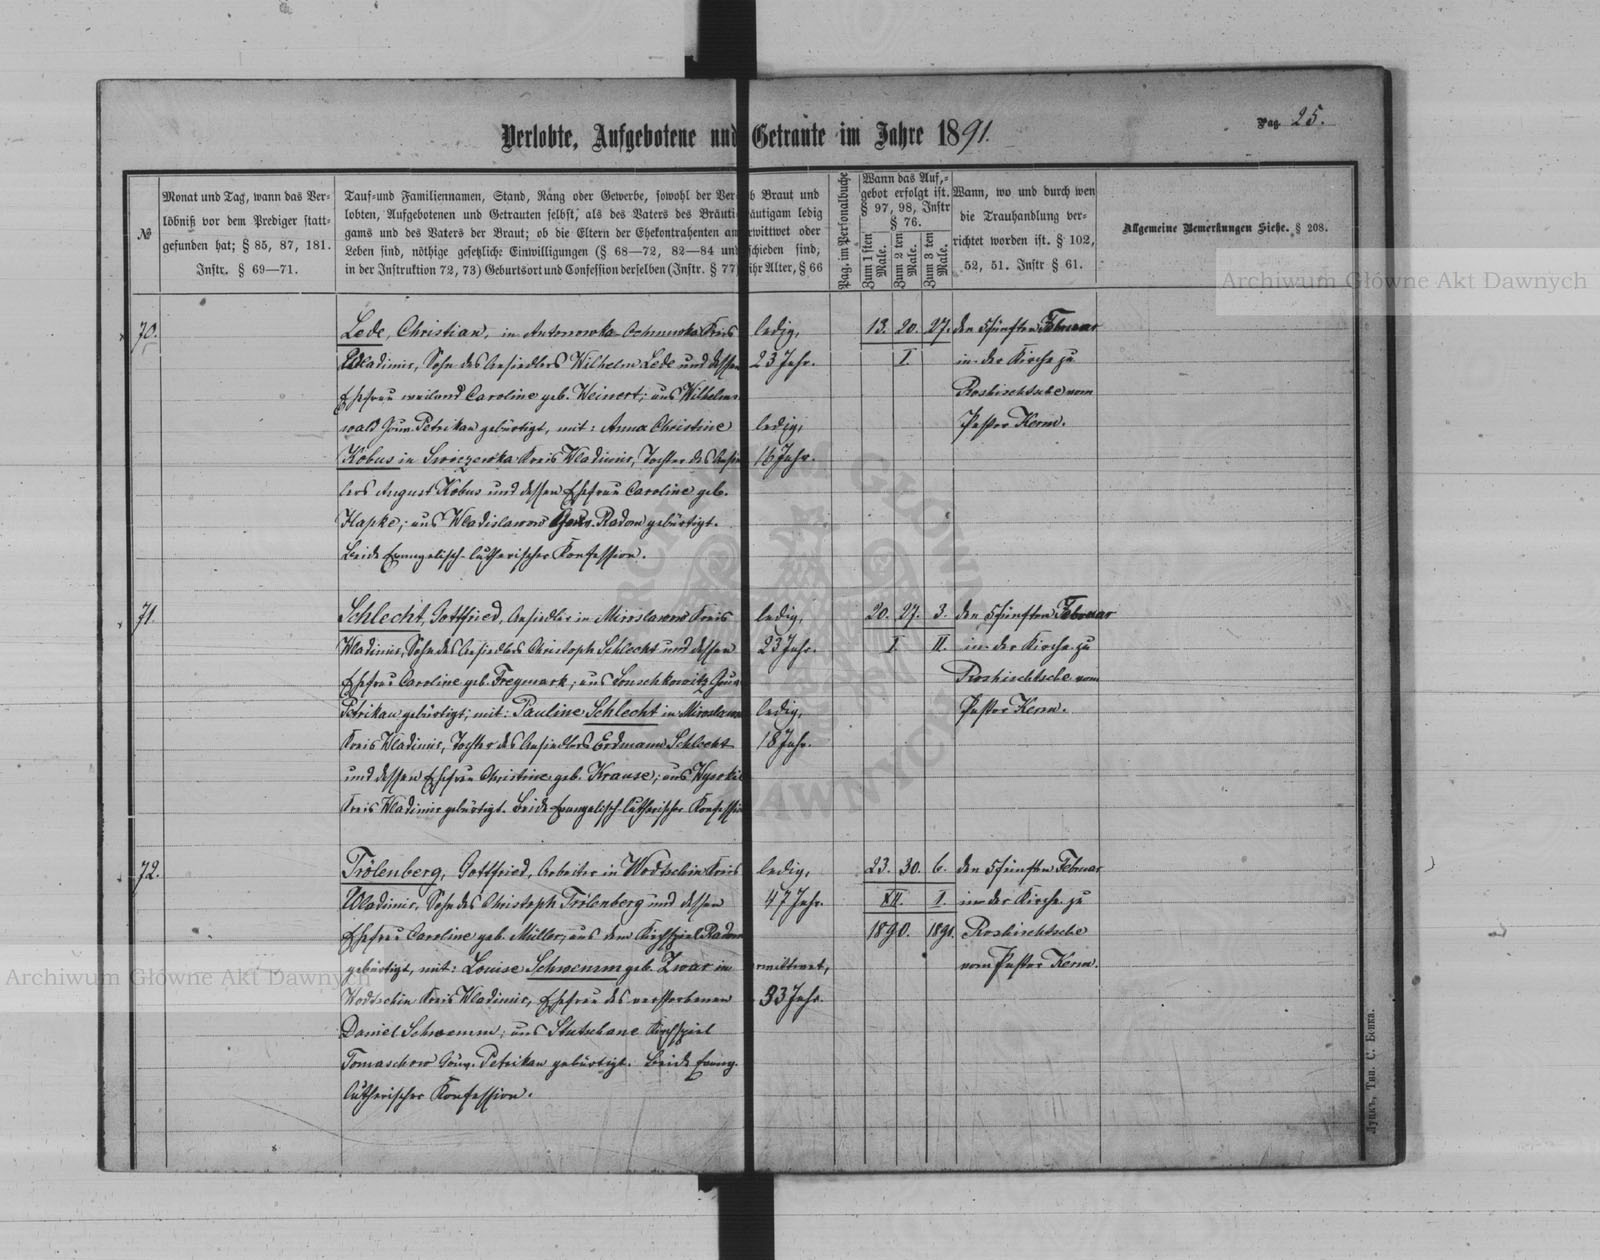 Pag. 25.
Verlobte, Aufgebotene und Getraute im Jahre 1891.
№
Monat und Tag, wann das Ver-
löbniß vor dem Prediger statt-
gefunden hat; § 85, 87, 181.
Instr. § 69—71.
Tauf=und Familiennamen, Stand, Rang oder Gewerbe, sowohl der Ver
lobten, Aufgebotenen und Getrauten selbst, als des Vaters des Bräuti
gams und des Vaters der Braut; ob die Eltern der Ehekontrahenten am
Leben sind, nöthige gesetzliche Einwilligungen (§ 68—72, 82—84 und
in der Instruktion 72, 73) Geburtsort und Confession derselben (Instr. § 77)
b Braut und
äutigam ledig
rwittwet oder
schieden sind,
ihr Alter, § 66
Pag. im Personalbuche
Wann das Auf=
gebot erfolgt ist.
§ 97, 98, Instr
§ 76.
Zum 1 sten Male.
Zum 2 ten Male.
Zum 3 ten Male.
Wann, wo und durch wen
die Trauhandlung ver-
richtet worden ist. § 102,
52, 51. Instr § 61.
Allgemeine Bemerkungen Siehe. § 208.
70.
Lede, Christian, in Antonowka-Ochnuwka Kreis
Wladimir, Sohn des Ansiedlers Wilhelm Lede und dessen
Ehefrau weiland Caroline geb. Weinert; aus Wilhelms-
wald Gouv. Petrikau gebürtigt, mit: Anna Christine
Kobus in Swiczewka Kreis Wladimir, Tochter des Ansied
lers August Kobus und dessen Ehefrau Caroline geb.
Hapke; aus Wladislawow Gouv. Radom gebürtigt.
Beide Evangelisch-lutherischer Konfession.
ledig,
23 Jahr.
ledig,
16 Jahr.
13. 20. 27.
I.
den 5 fünften Februar
in der Kirche zu
Roshischtsche vom
Pastor Kerm.
71.
Schlecht, Gottfried, Ansiedler in Miroslawow Kreis
Wladimir, Sohn des Ansiedlers Christoph Schlecht und dessen
Ehefrau Caroline geb. Freymark; aus Gouv.
Petrikau gebürtigt; mit: Pauline Schlecht in Miroslawow
Kreis Wladimir, Tochter des Ansiedlers Erdmann Schlecht
und dessen Ehefrau Christine geb. Krause; aus
Kreis Wladimir gebürtigt. Beide Evangelisch-lutherischer Konfession
ledig,
23 Jahr.
ledig,
18 Jahr.
20. 27. 3.
I. II.
den 5 fünften Februar
in der Kirche zu
Roshischtsche vom
Pastor Kerm.
72.
Trölenberg, Gottfried, Arbeiter in Wodtschin Kreis
Wladimir, Sohn des Christoph Trölenberg und dessen
Ehefrau Caroline geb. Müller; aus dem Kirchspiel Radom
gebürtigt, mit: Louise Schwemm geb. Zwar in
Wodtschin Kreis Wladimir, Ehefrau des verstorbenen
Daniel Schwemm; aus Kirchspiel
Tomaschow Gouv. Petrikau gebürtigt. Beide Evang.
lutherischer Konfession.
ledig,
47 Jahr.
wittwet,
33 Jahr.
23. 30. 6.
XII. I.
1890. 1891.
den 5 fünften Februar
in der Kirche zu
Roshischtsche
vom Pastor Kerm.
Луцкъ, Тип. С. Бенка.
Archiwum Główne Akt Dawnych
Archiwum Główne Akt Dawnych